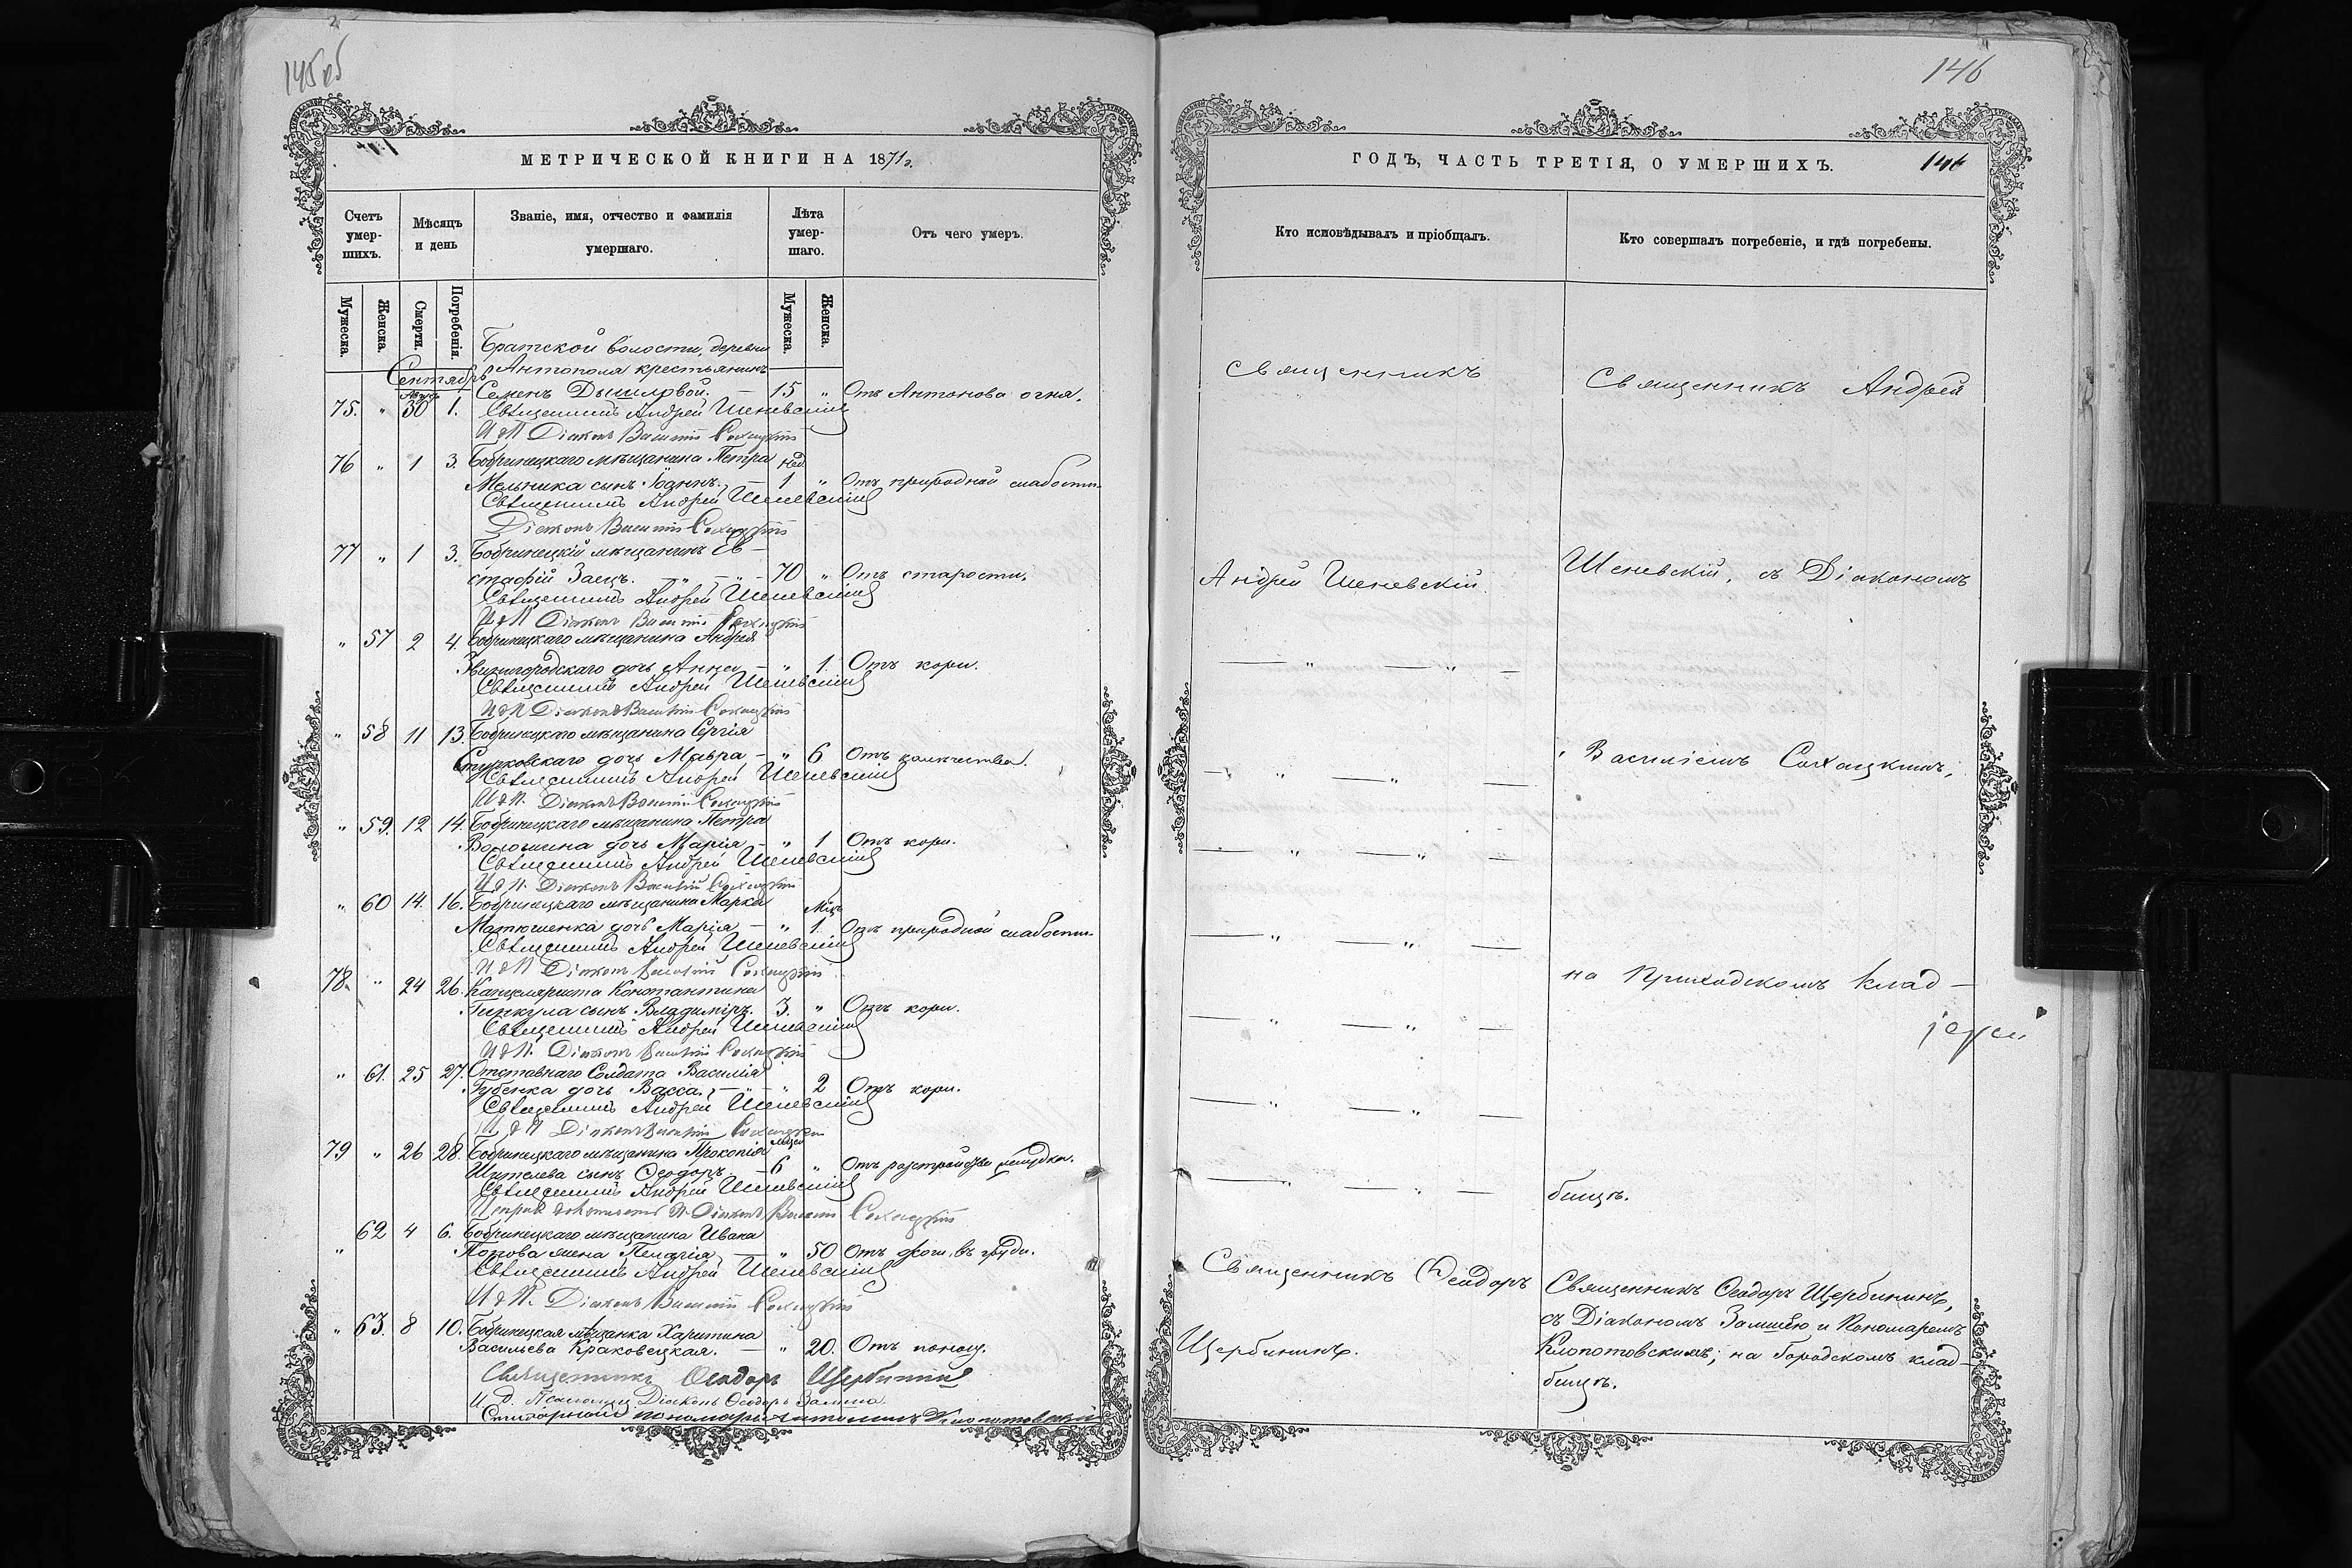 145об
МЕТРИЧЕСКОЙ КНИГИ НА 1871 г.
Счетъ умер-шихъ.
Мѣсяцъ и день
Званіе, имя, отчество и фамилія умершаго.
Лѣта умер-шаго.
Отъ чего умеръ.
Мужеска. Женска. Смерти. Погребенія. Мужеска. Женска.
Братской волости, деревни
Сентябрь Антополя крестьянинъ
75. " 30 1. Семенъ Дышловой. — 15 " Отъ Антонова огня.
Священникъ Андрей Шеневскій
И д П Діаконъ Василій Сохацкій
76 " 1 3. Бобринецкаго мѣщанина Петра нед.
Мельника сынъ Іоаннъ. — 1 " Отъ природной слабости.
Священникъ Андрей Шеневскій
Діаконъ Василій Сохацкій
77 " 1 3. Бобринецкій мѣщанинъ Ев-
стафій Заецъ. — " — " — 70 " Отъ старости.
Священникъ Андрей Шеневскій
И д П Діаконъ Василій Сохацкій
" 57 2 4. Бобринецкаго мѣщанина Андрея
Звенигородскаго дочь Анна — " 1. Отъ кори.
Священникъ Андрей Шеневскій
И д П Діаконъ Василій Сохацкій
" 58 11 13. Бобринецкаго мѣщанина Сергія
дочь Мавра — " 6 Отъ
Священникъ Андрей Шеневскій
И д П. Діаконъ Василій Сохацкій
" 59. 12 14. Бобринецкаго мѣщанина Петра
Волошина дочь Марія — " 1 Отъ кори.
Священникъ Андрей Шеневскій
И д П. Діаконъ Василій Сохацкій
" 60 14. 16. Бобринецкаго мѣщанина Марка Мѣц.
Матюшенка дочь Марія — " 1. Отъ природной слабости
Священникъ Андрей Шеневскій
И д П Діаконъ Василій Сохацкій
78. " 24 26. Канцеляриста Константина
Гинкула сынъ Владиміръ. 3. " Отъ кори.
Священникъ Андрей Шеневскій
И д П. Діаконъ Василій Сохацкій
" 61. 25 27. Отставнаго Солдата Василія
Губенка дочь Васса, — " — " 2 Отъ кори.
Священникъ Андрей Шеневскій
И д П Діаконъ Василій Сохацкій
79 " 26 28. Бобринецкаго мѣщанина Прокопія
сынъ Ѳеодоръ. — 6 " Отъ разстройства желудка.
Священникъ Андрей Шеневскій
Діаконъ Василій Сохацкій
" 62 4 6. Бобринецкаго мѣщанина Ивана
Попова жена Пелагія — " 50 Отъ въ груди.
Священникъ Андрей Шеневскій
И д П. Діаконъ Василій Сохацкій
" 63. 8 10. Бобринецкая мѣщанка Харитина
Васильева Краковецкая. — " 20. Отъ
Священникъ Ѳеодоръ Щербининъ
И. д. Діаконъ Ѳеодоръ Замша
пономарь Клопотовскій
146
ГОДЪ, ЧАСТЬ ТРЕТІЯ, О УМЕРШИХЪ. 146
Кто исповѣдывалъ и пріобщалъ.
Кто совершалъ погребеніе, и гдѣ погребены.
Священникъ
Священникъ Андрей
Андрей Шеневскій.
Шеневскій, съ Діакономъ
— " — " —
Василіемъ Сохацкимъ,
— " — " —
— " — " —
— " — " —
на Приходскомъ клад-
— " — " —
— " — " —
— " — " —
бищѣ.
Священникъ Ѳеодоръ
Щербининъ.
Священникъ Ѳеодоръ Щербининъ,
съ Діакономъ Замшею и Пономаремъ
Клопотовскимъ; на Городскомъ клад-
бищѣ.